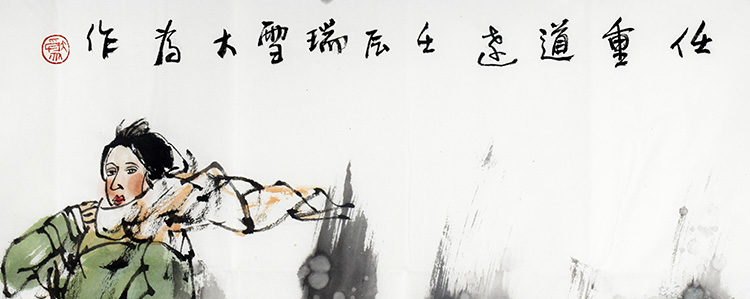 任重道遠壬辰瑞雪大為作